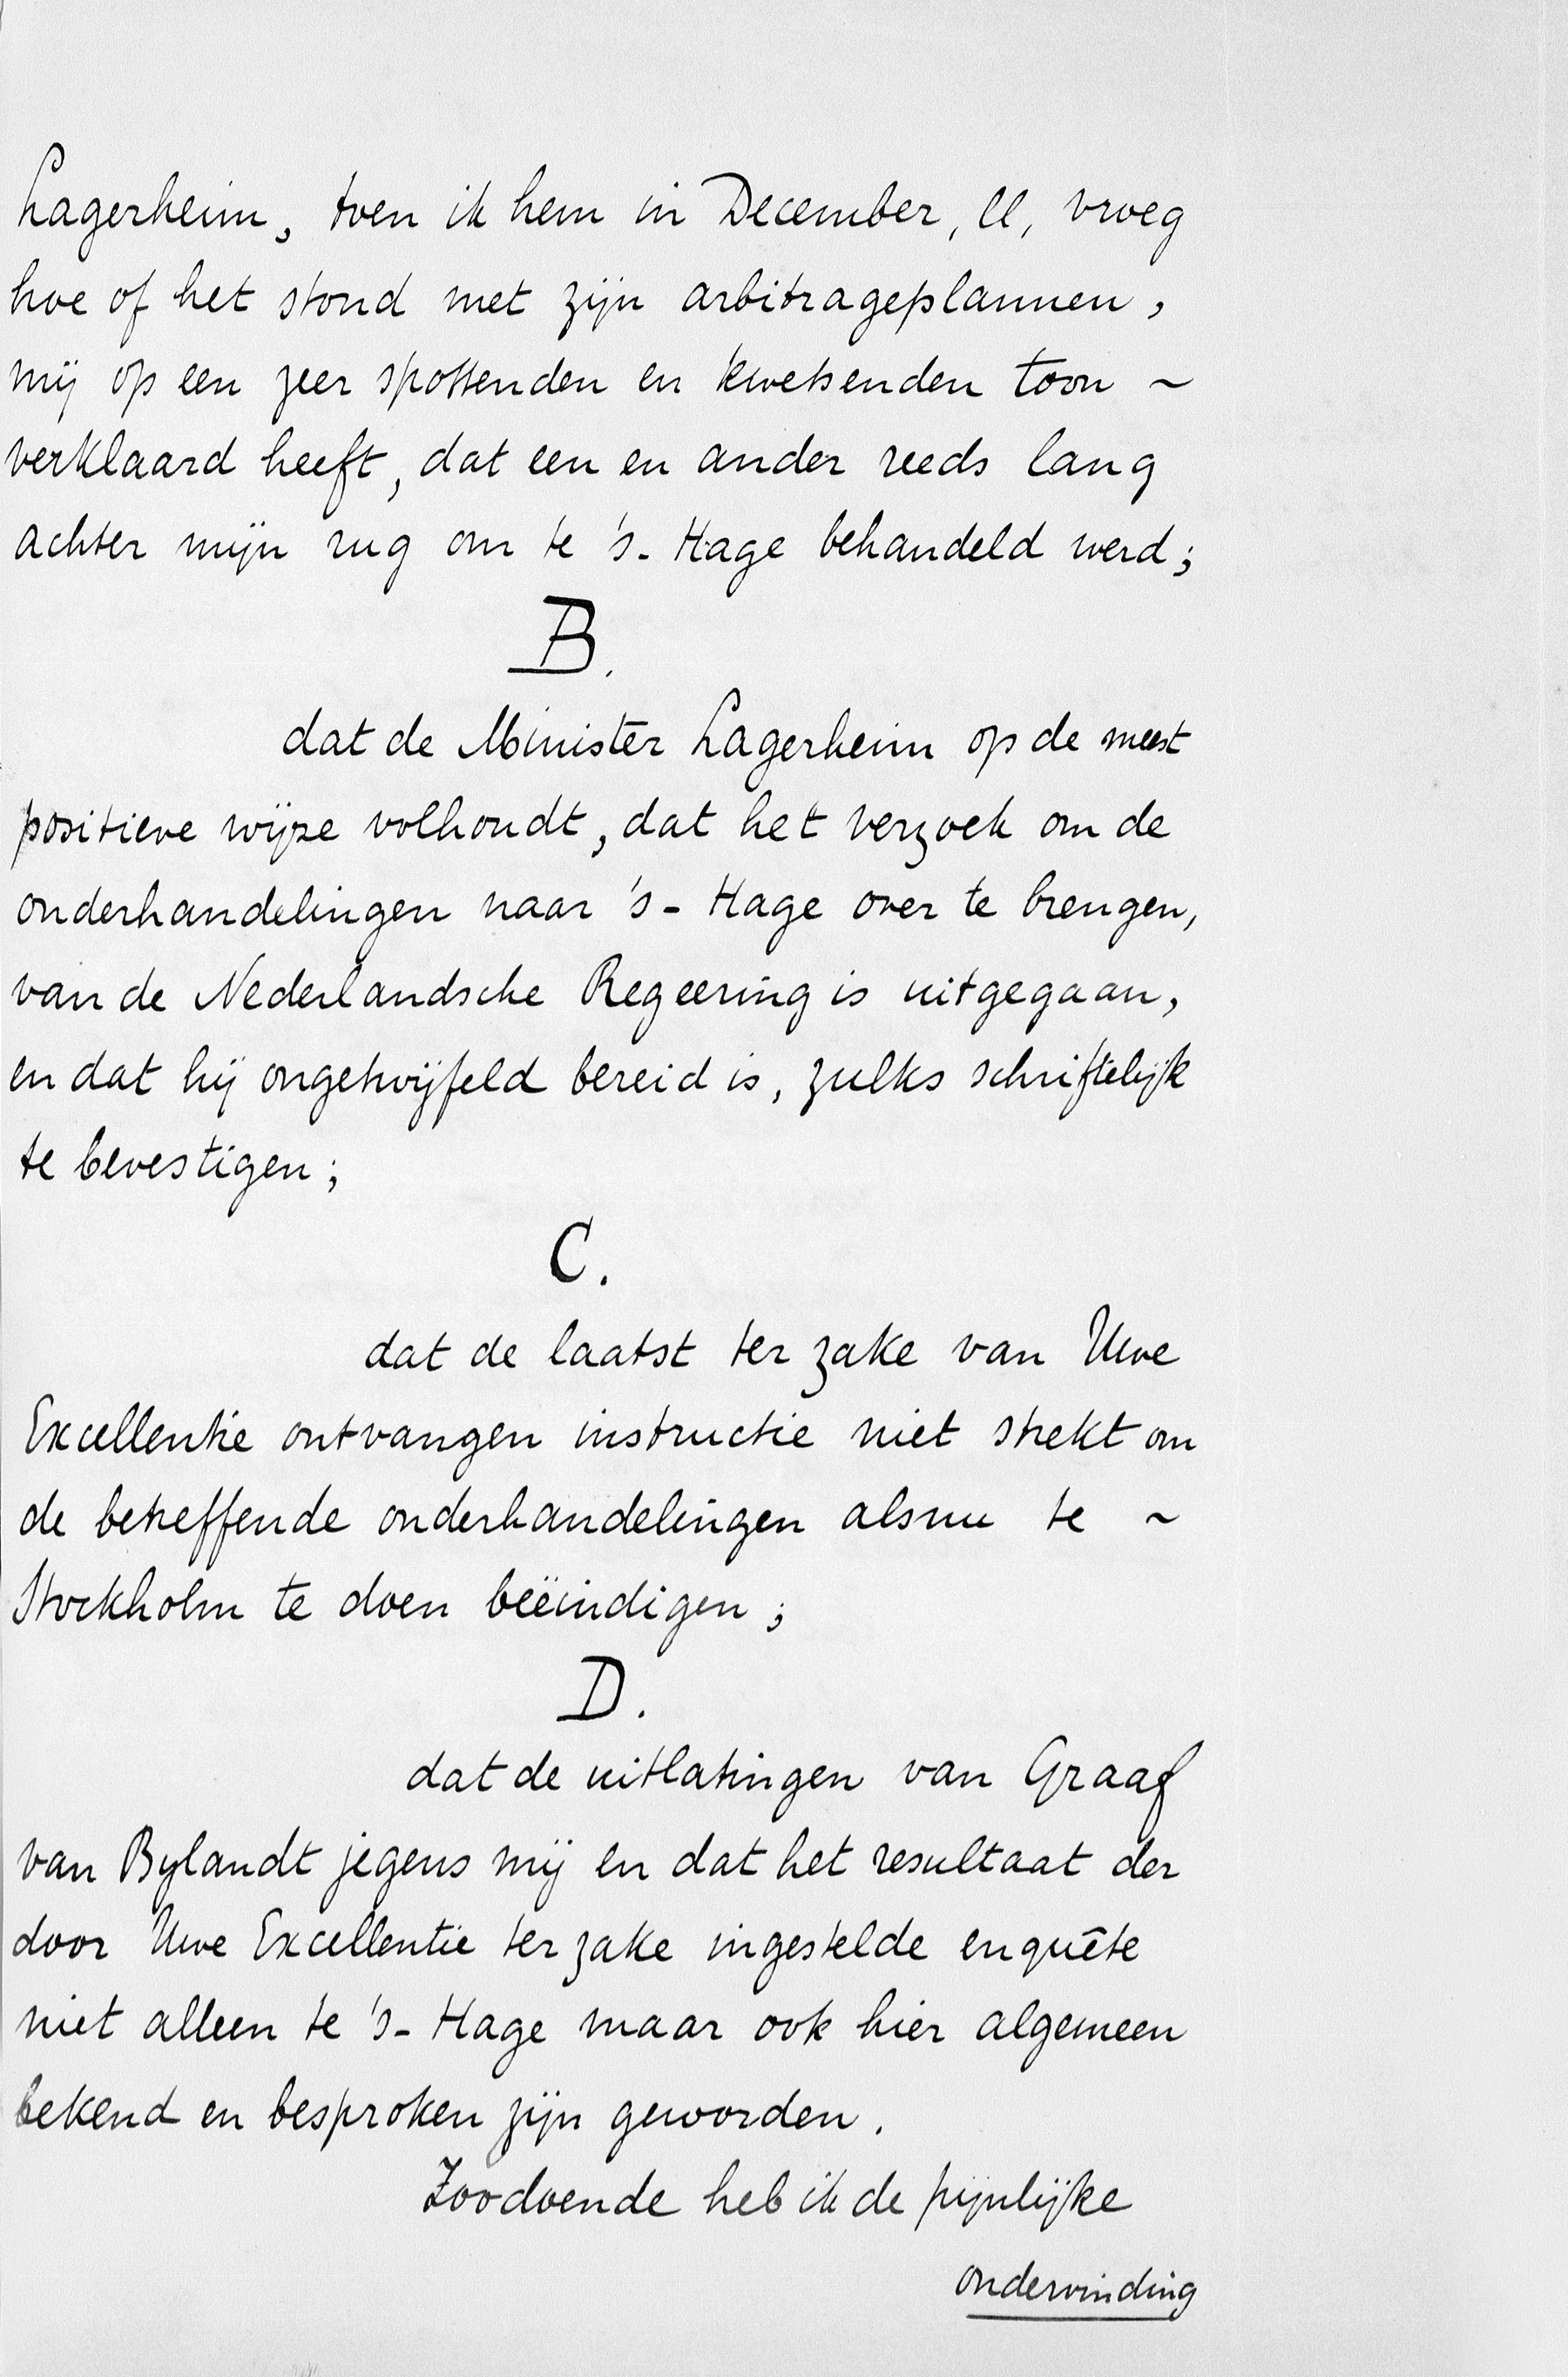 Lagerheim, toen ik hem in December, ll, vroeg
hoe of het stond met zijn arbitrageplannen,
mij op een zeer spottenden en kwetsenden toon ~
verklaard heeft, dat een en ander reeds lang
achter mijn rug om te 's-Hage behandeld werd;
B.
dat de Minister Lagerheim op de meest
positieve wijze volhoudt, dat het verzoek om de
onderhandelingen naar 's-Hage over te brengen,
van de Nederlandsche Regeering is uitgegaan,
en dat hij ongetwijfeld bereid is, zulks schriftelijk
te bevestigen;
C.
dat de laatst ter zake van Uwe
Excellentie ontvangen instructie niet strekt om
de betreffende onderhandelingen alsnu te ~
Stockholm te doen beëindigen;
D.
dat de uitlatingen van Graaf
van Bylandt jegens mij en dat het resultaat der
door Uwe Excellentie ter zake ingestelde enquête
niet alleen te 's-Hage maar ook hier algemeen
bekend en besproken zijn geworden.
Zoodoende heb ik de pijnlijke
ondervinding